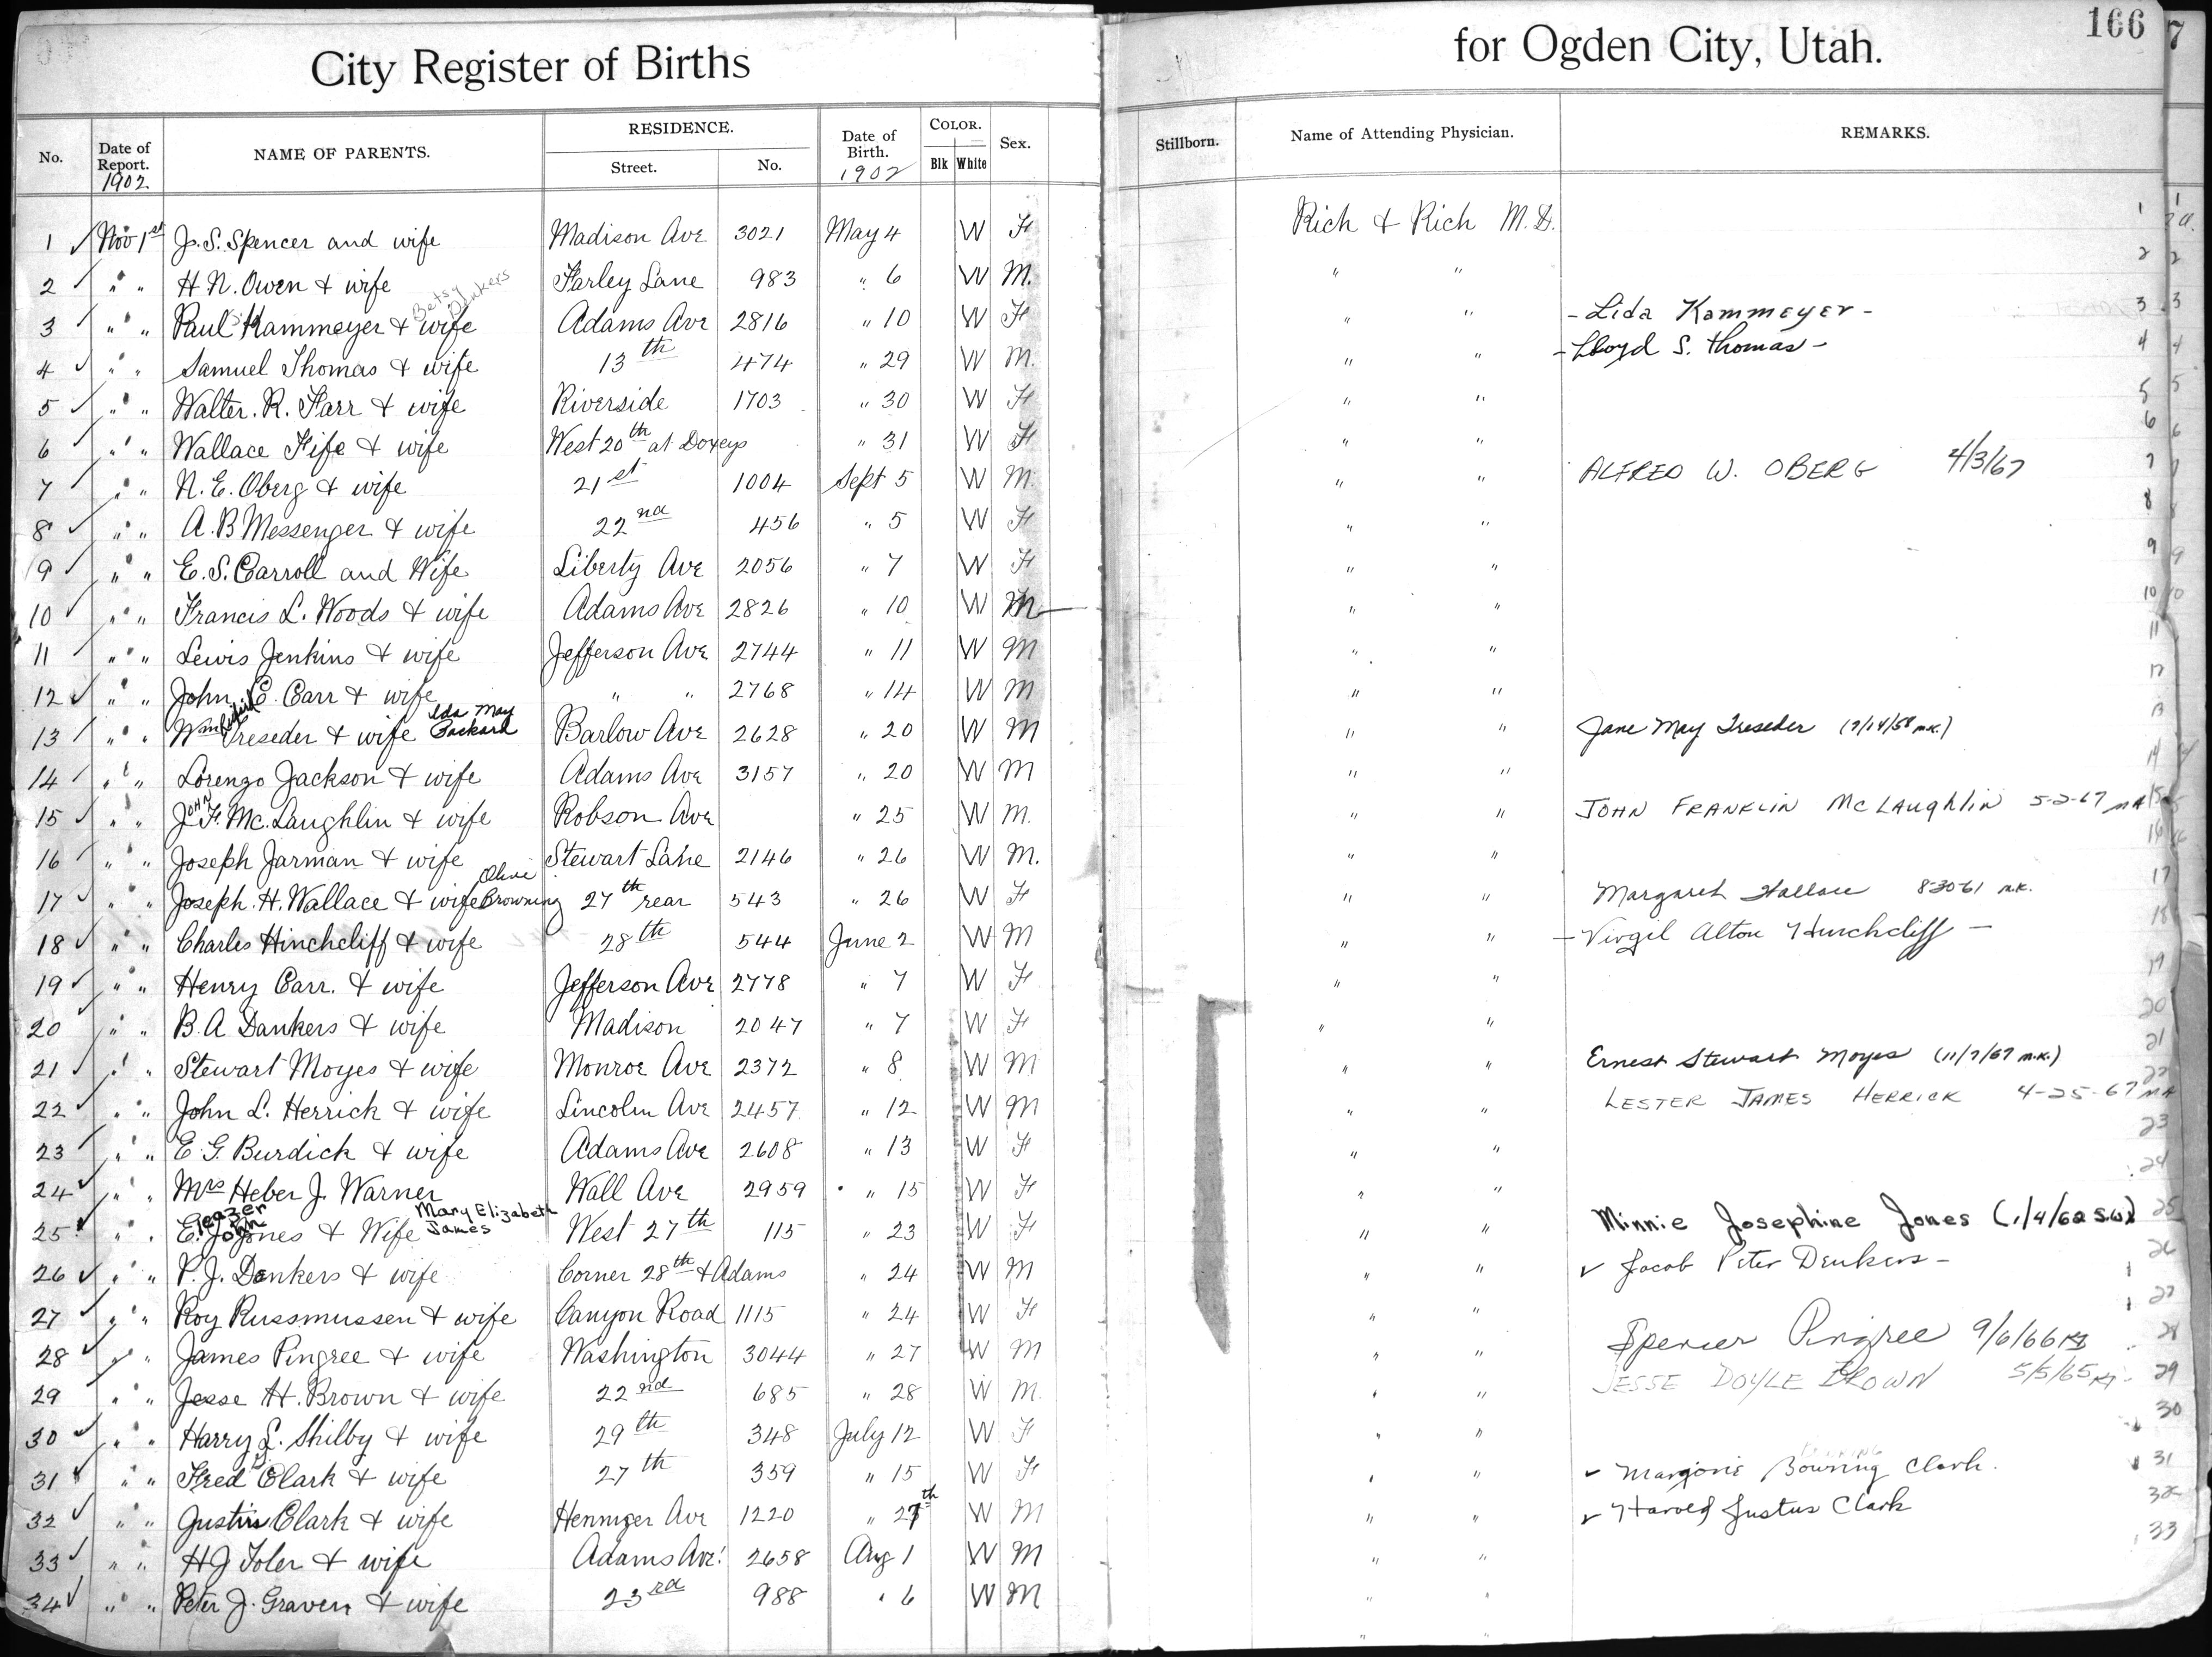 City Register of Births for Ogden City, Utah. 166 7
No. Date of Report. 1902 NAME OF PARENTS. RESIDENCE. Street. No. Date of Birth. 1902 COLOR. Blk White Sex. Stillborn. Name of Attending Physician. REMARKS.
1 ✓ Nov 1st J. S. Spencer and wife Madison Ave 3021 May 4 W F Rich & Rich M.D. 1
2 ✓ " " H. N. Owen & wife Farley Lane 983 " 6 W M. " " 2
Betsy Denkers
3 ✓ " " Paul Kammeyer & wife Adams Ave 2816 " 10 W F " " - Lida Kammeyer - 3
4 ✓ " " Samuel Thomas & wife 13th 474 " 29 W M. " " - Lloyd S. Thomas - 4
5 ✓ " " Walter. R. Farr & wife Riverside 1703 " 30 W F " " 5
6 ✓ " " Wallace Fife & wife West 20th at Doxeys " 31 W F " " 6
7 ✓ " " N. E. Oberg & wife 21st 1004 Sept 5 W M. " " ALFRED W. OBERG 4/3/67 7
8 ✓ " " A. B Messenger & wife 22nd 456 " 5 W F " " 8
9 ✓ " " E. S. Carroll and Wife Liberty Ave 2056 " 7 W F " " 9
10 ✓ " " Francis L. Woods & wife Adams Ave 2826 " 10 W M " " 10
11 ✓ " " Lewis Jenkins & wife Jefferson Ave 2744 " 11 W M " " 11
12 ✓ " " John E. Carr & wife " " 2768 " 14 W M " " 12
Ida May Packard
13 ✓ " " Wm Treseder & wife Barlow Ave 2628 " 20 W M " " Jane May Treseder (7/14/58 m.k.) 13
14 ✓ " " Lorenzo Jackson & wife Adams Ave 3157 " 20 W M " " 14
15 ✓ " " John F. Mc. Laughlin & wife Robson Ave " 25 W M. " " JOHN FRANKLIN McLAughlin 5-2-67 MA 15
16 ✓ " " Joseph Jarman & wife Stewart Lane 2146 " 26 W M. " " 16
Olive Browning
17 ✓ " " Joseph. H. Wallace & wife 27th rear 543 " 26 W F " " Margaret Wallace 8-30-61 m.k. 17
18 ✓ " " Charles Hinchcliff & wife 28th 544 June 2 W M " " - Virgil Alton Hinchcliff - 18
19 ✓ " " Henry Carr. & wife Jefferson Ave 2778 " 7 W F " " 19
20 ✓ " " B. A Dankers & wife Madison 2047 " 7 W F " " 20
21 ✓ " " Stewart Moyes & wife Monroe Ave 2372 " 8 W M " " Ernest Stewart Moyes (11/7/57 m.k.) 21
22 ✓ " " John L. Herrick & wife Lincoln Ave 2457 " 12 W M " " LESTER JAMES HERRICK 4-25-67 MA 22
23 ✓ " " E. G. Burdick & wife Adams Ave 2608 " 13 W F " " 23
24 ✓ " " Mrs Heber J. Warner Wall Ave 2959 " 15 W F " " 24
leazer John Mary Elizabeth James
25 ✓ " " E. J. Jones & Wife West 27th 115 " 23 W F " " Minnie Josephine Jones (1/4/62 S.W.) 25
26 ✓ " " P. J. Denkers & wife Corner 28th & Adams " 24 W M " " ✓ Jacob Peter Denkers - 26
27 ✓ " " Roy Russmussen & wife Canyon Road 1115 " 24 W F " " 27
28 ✓ " " James Pingree & wife Washington 3044 " 27 W M " " Spencer Pingree 9/6/66 28
29 " " Jesse H. Brown & wife 22nd 685 " 28 W M. " " JESSE DOYLE BROWN 5/5/65 29
30 ✓ " " Harry L. Shilby & wife 29th 348 July 12 W F " " 30
31 ✓ " " Fred Clark & wife 27th 359 " 15 W F " " ✓ Marjorie Bowring Clark. 31
32 ✓ " " Justus Clark & wife Henniger Ave 1220 " 27th W M " " ✓ Harold Justus Clark 32
33 ✓ " " H J Toler & wife Adams Ave. 2658 Aug 1 W M " " 33
34 ✓ " " Peter J. Graven & wife 23rd 988 " 6 W M " "